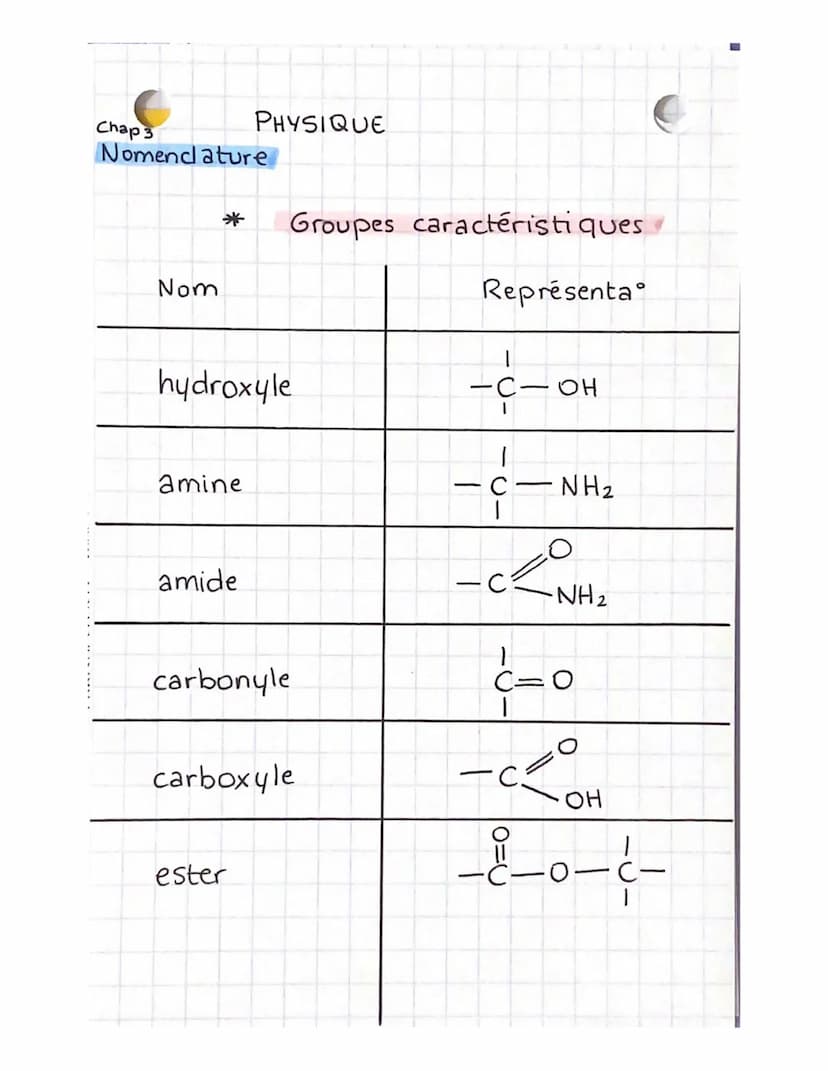 PHYSIQUE
Chap 3
Nomenclature
* Groupes caractéristiques
Nom Représenta°
hydroxyle -C-OH
amine -C-NH₂
amide -C=O -NH₂
carbonyle C=O
carboxyle -C=O -OH
ester -C(=O)-O-C-